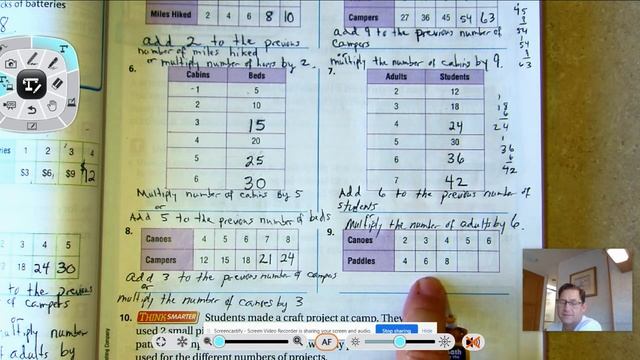 cks of batteries
8.
Miles Hiked 2 4 6 8 10
Campers 27 36 45 54 63
45
9
54
1
54
9
63
add 2 to the previous
number of miles hiked
or multiply number of hours by 2.
add 9 to the previous number of
campers
multiply the number of cabins by 9.
6.
Cabins Beds
1 5
2 10
3 15
4 20
5 25
6 30
Multiply number of cabins by 5
or
Add 5 to the previous number of beds
7.
Adults Students
2 12
3 18
4 24
5 30
6 36
7 42
1
18
6
24
1
36
6
42
Add 6 to the previous number of
students
Multiply the number of adults by 6.
ries 1 2 3 4
$3 $6 $9 $12
8.
Canoes 4 5 6 7 8
Campers 12 15 18 21 24
add 3 to the previous number of campers
or
multiply the number of canoes by 3
9.
Canoes 2 3 4 5 6
Paddles 4 6 8
3 4 5
18 24 30
to the previous
of
multiply number
adults by
10. THINK SMARTER Students made a craft project at camp. They
used 2 small pi
pat
used for the different numbers of projects.
Screencastify - Screen Video Recorder is sharing your screen and audio. Stop sharing Hide
AF
T